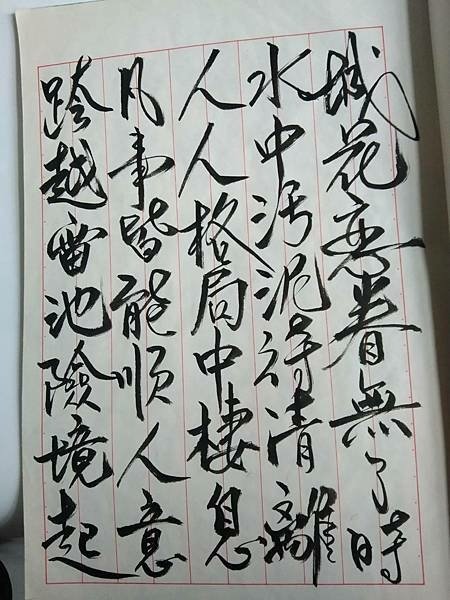 城花戀眷無了時
水中污泥待清離
人人格局中棲息
凡事皆能順人意
跨越雷池險境起